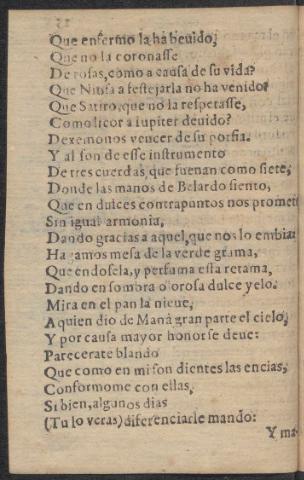 Que enfermo la ha beuido,
Que no la coronasse
De rosas, como a causa de su vida?
Que Ninfa a festejarla no ha venido?
Que Satiro, que no la respetasse,
Como licor a Iupiter deuido?
Dexemonos vencer de su porfia.
Y al son de esse instrumento
De tres cuerdas, que suenan como siete,
Donde las manos de Belardo siento,
Que en dulces contrapuntos nos promet
Sin igual armonia,
Dando gracias a aquel, que nos lo embia:
Hagamos mesa de la verde grama,
Que endosela, y perfuma esta retama,
Dando en sombra olorosa dulce yelo.
Mira en el pan la nieue,
A quien dio de Manà gran parte el cielo,
Y por causa mayor honor se deue:
Parecerate blando
Que como en mi son dientes las encias,
Conformome con ellas,
Si bien, algunos dias
(Tu lo veras) diferenciarle mando:
Y ma-